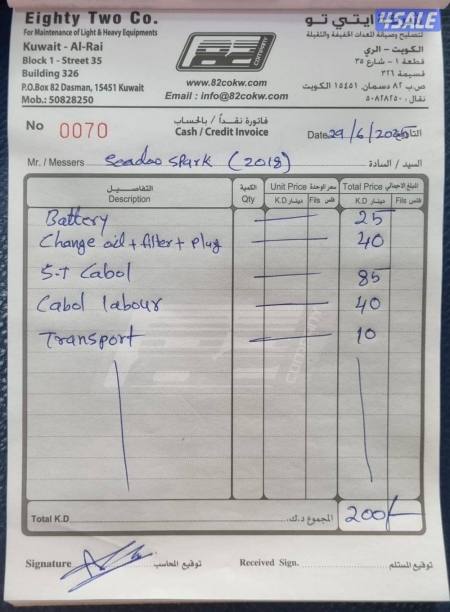 Eighty Two Co.
ايتي تو
4SALE
For Maintenance of Light & Heavy Equipments
لتصليح وصيانة المعدات الخفيفة والثقيلة
Kuwait - Al-Rai
الكويت - الري
Block 1 - Street 35
قطعة ١ - شارع ٣٥
Building 326
قسيمة ٣٢٦
P.O.Box 82 Dasman, 15451 Kuwait
ص.ب ٨٢ دسمان، ١٥٤٥١ الكويت
Mob.: 50828250
نقال : ٥٠٨٢٨٢٥٠
COMPANY
www.82cokw.com
Email : info@82cokw.com
No 0070
فاتورة نقداً / بالحساب
Cash / Credit Invoice
Date 29/6/2025 التاريخ
Mr. / Messers Seadoo SPark (2018) السيد / السادة
التفاصيـــل الكمية Unit Price سعر الوحدة Total Price المبلغ الاجمالي
Description Qty K.D دينار Fils فلس K.D دينار Fils فلس
Battery 25
Change oil + filter + plug 40
S-T Cabol 85
Cabol labour 40
Transport 10
COMPANY
Total K.D المجموع د.ك. 200/-
Signature توقيع المحاسب Received Sign. توقيع المستلم